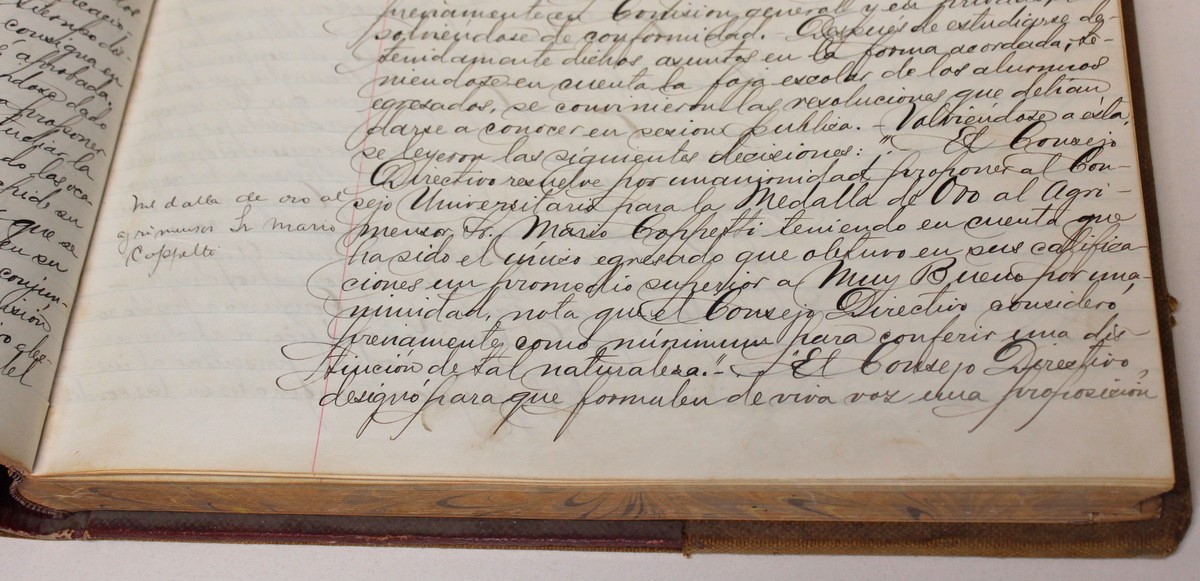 siempre di-
consigna en
aprobada.
dose dado
proponer
estudiar la
do las oca-
en su
que se
en su
conjun-
misión
previamente, en Comisión general y en
solviéndose de conformidad. Después de estudiarse de-
tenidamente dichos asuntos en la forma acordada, te-
niendose en cuenta la foja escolar de los alumnos
egresados, se convinieron las resoluciones que debían
darse a conocer en sesión publica. Volviéndose a ésta,
se leyeron las siguientes decisiones: " El Consejo
Directivo resuelve por unanimidad proponer al Con-
sejo Universitario para la Medalla de Oro al Agri-
mensor, Sr. Mario Coppetti teniendo en cuenta que
ha sido el único egresado que obtuvo en sus califica
ciones un promedio superior a Muy Bueno por una-
nimidad, nota que el Consejo Directivo, consideró,
previamente, como mínimum para conferir una dis-
tinción de tal naturaleza."- "El Consejo Directivo,
designó para que formulen de viva voz una proposición
Medalla de oro al
agrimensor Sr Mario
Coppetti